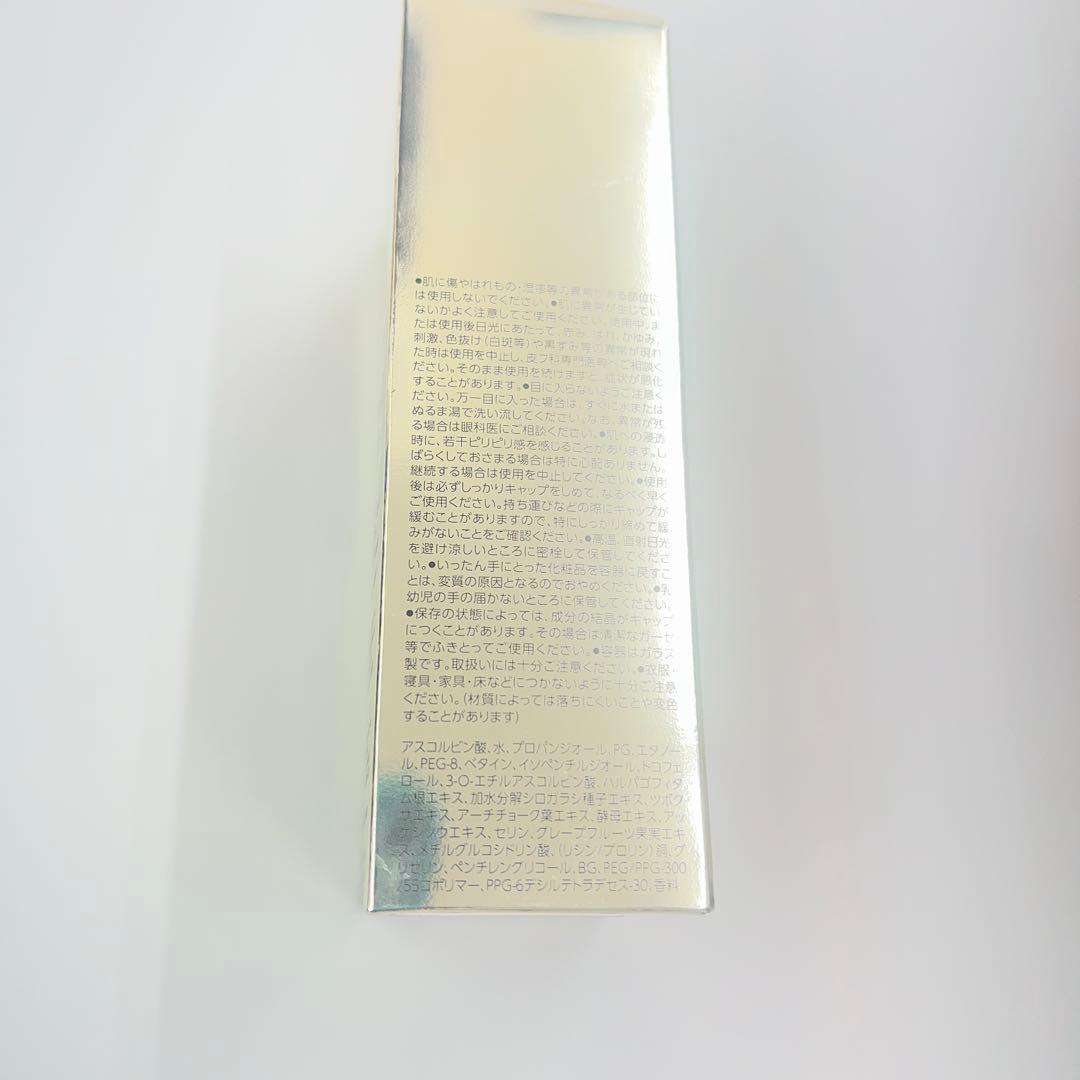 ●肌に傷やはれもの・湿疹等の異常がある部位に
は使用しないでください。●肌に異常が生じてい
ないかよく注意してご使用ください。使用中、ま
たは使用後日光にあたって、赤み、はれ、かゆみ、
刺激、色抜け(白斑等)や黒ずみ等の異常が現れ
た時は使用を中止し、皮フ科専門医等へご相談く
ださい。そのまま使用を続けますと、症状が悪化
することがあります。●目に入らないようご注意く
ださい。万一目に入った場合は、すぐに水または
ぬるま湯で洗い流してください。なお、異常が残
る場合は眼科医にご相談ください。●肌への浸透
時に、若干ピリピリ感を感じることがあります。し
ばらくしておさまる場合は特に心配ありません。
継続する場合は使用を中止してください。●使用
後は必ずしっかりキャップをしめて、なるべく早く
ご使用ください。持ち運びなどの際にキャップが
緩むことがありますので、特にしっかり締めて緩
みがないことをご確認ください。●高温、直射日光
を避け涼しいところに密栓して保管してくださ
い。●いったん手にとった化粧品を容器に戻すこ
とは、変質の原因となるのでおやめください。●乳
幼児の手の届かないところに保管してください。
●保存の状態によっては、成分の結晶がキャップ
につくことがあります。その場合は清潔なガーゼ
等でふきとってご使用ください。●容器はガラス
製です。取扱いには十分ご注意ください。●衣服・
寝具・家具・床などにつかないように十分ご注意
ください。(材質によっては落ちにくいことや変色
することがあります)
アスコルビン酸、水、プロパンジオール、PG、エタノー
ル、PEG-8、ベタイン、イソペンチルジオール、トコフェ
ロール、3-O-エチルアスコルビン酸、ハルパゴフィタ
ム根エキス、加水分解シロガラシ種子エキス、ツボク
サエキス、アーチチョーク葉エキス、酵母エキス、アッ
ケシソウエキス、セリン、グレープフルーツ果実エキ
ス、メチルグルコシドリン酸、(リシン/プロリン)銅、グ
リセリン、ペンチレングリコール、BG、PEG/PPG-300
/55コポリマー、PPG-6デシルテトラデセス-30、香料